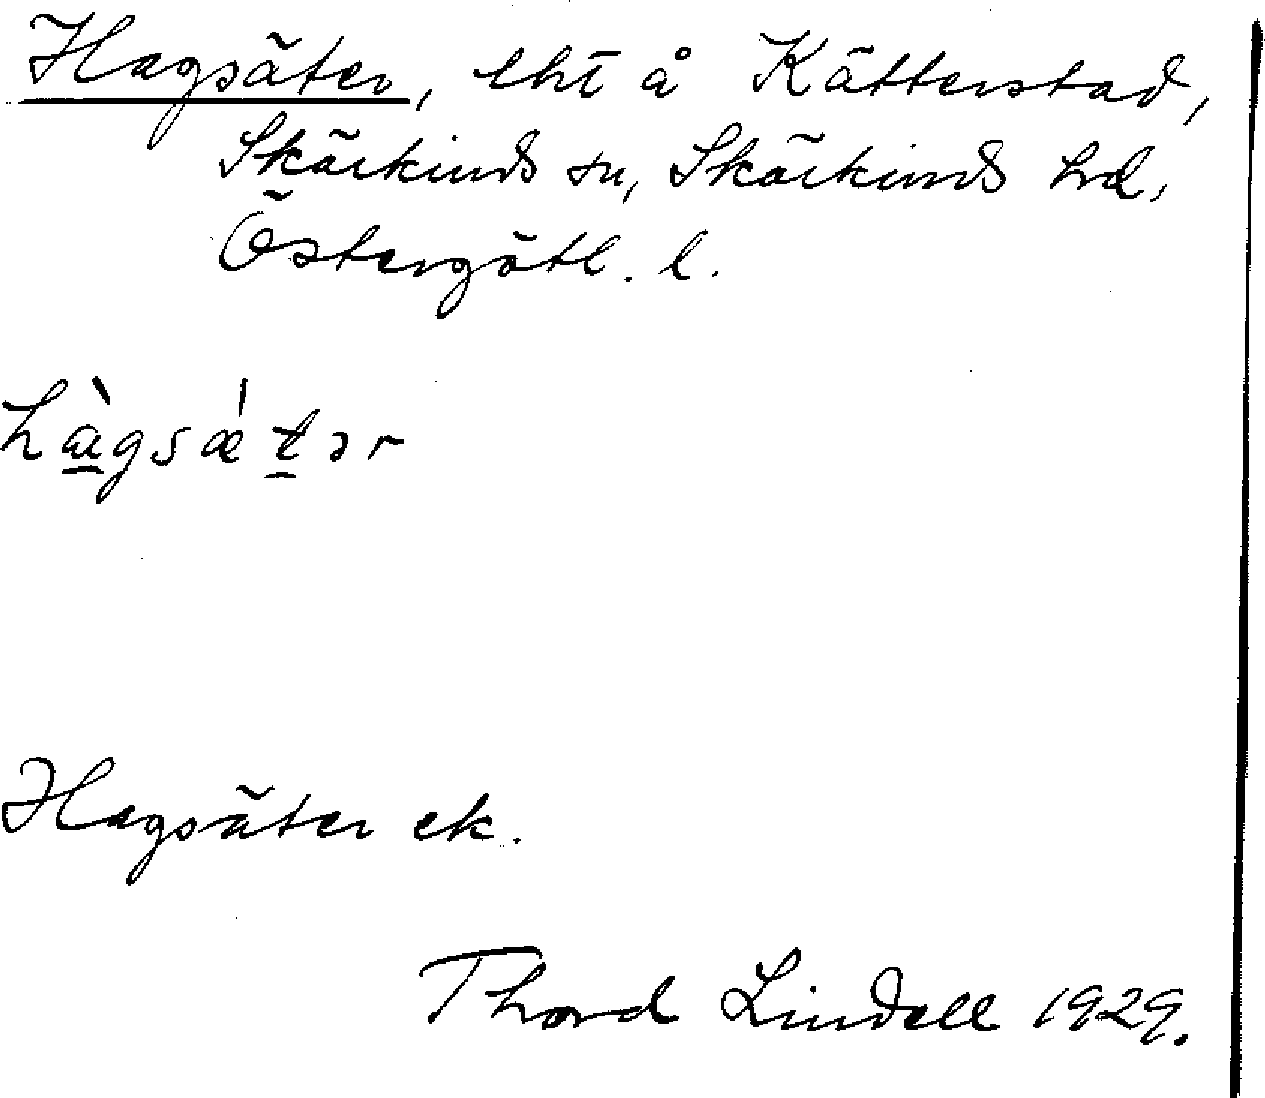 Hagsäter, lht å Kätterstad,
Skärkinds sn, Skärkinds hd,
Östergötl. l.
hàgsǽtər
Hagsäter ek.
Thord Lindell 1929.